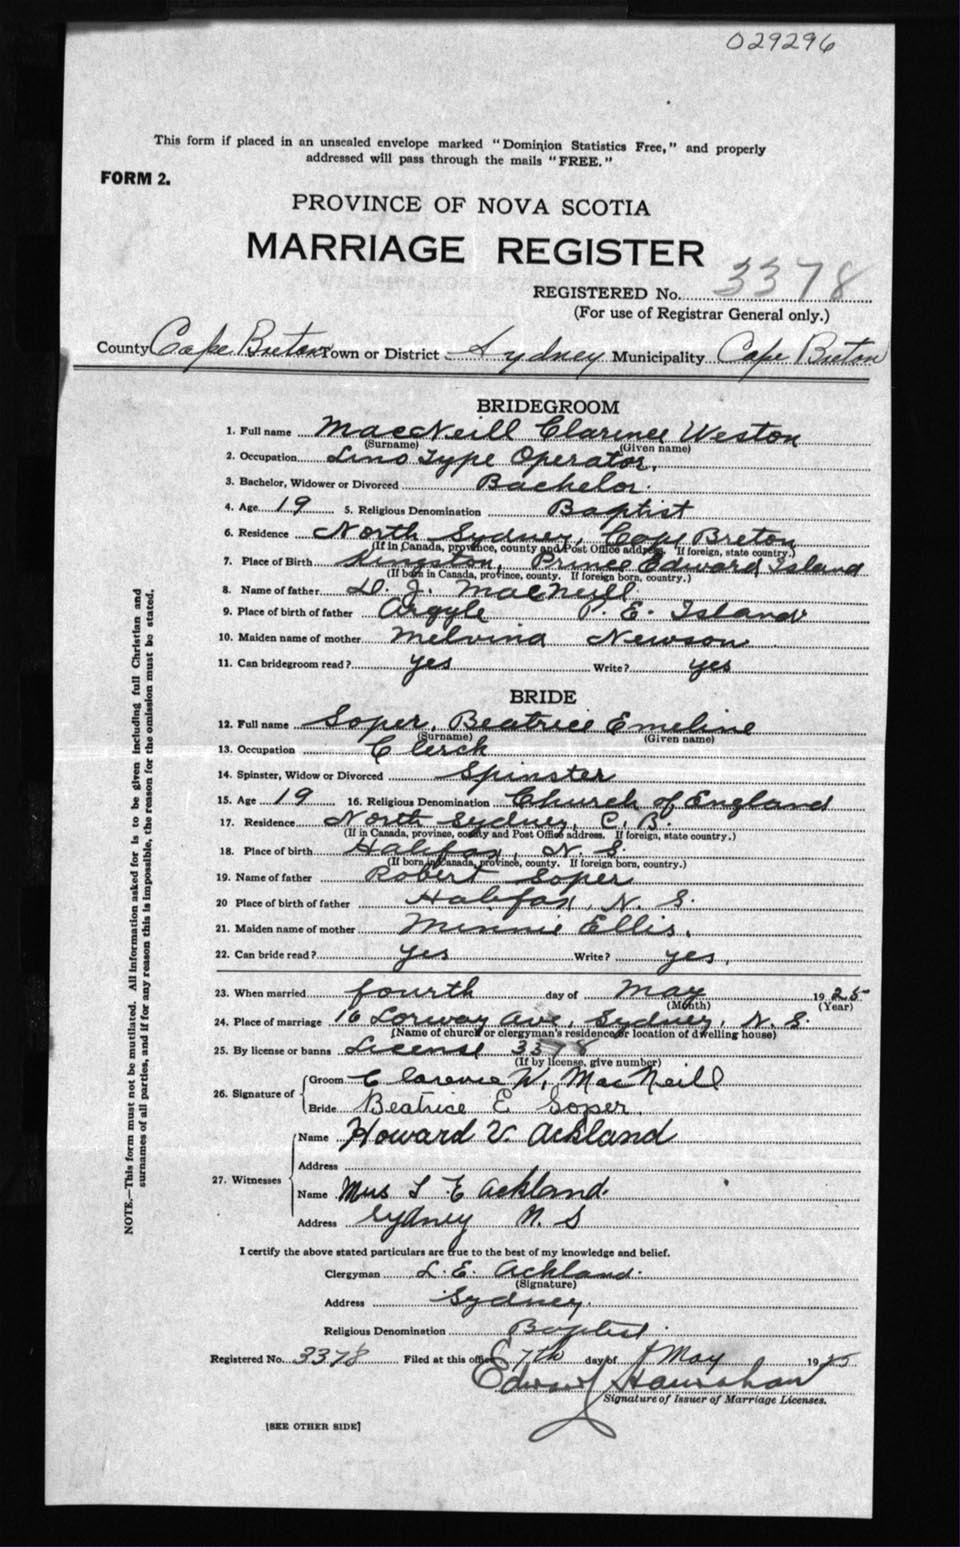 029296
This form if placed in an unsealed envelope marked "Dominion Statistics Free," and properly
addressed will pass through the mails "FREE."
FORM 2.
PROVINCE OF NOVA SCOTIA
MARRIAGE REGISTER
REGISTERED No. 3378
(For use of Registrar General only.)
County Cape Breton Town or District Sydney Municipality Cape Breton
BRIDEGROOM
1. Full name MacNeill Clarence Weston
(Surname) (Given name)
2. Occupation Lino Type Operator.
3. Bachelor, Widower or Divorced Bachelor.
4. Age 19 5. Religious Denomination Baptist
6. Residence North Sydney, Cape Breton
(If in Canada, province, county and Post Office address. If foreign, state country.)
7. Place of Birth Kingston, Prince Edward Island
(If born in Canada, province, county. If foreign born, country.)
8. Name of father D. J. MacNeill
9. Place of birth of father Argyle P. E. Island
10. Maiden name of mother Melvina Newson
11. Can bridegroom read? yes Write? yes
BRIDE
12. Full name Soper, Beatrice Emeline
(Surname) (Given name)
13. Occupation Clerck
14. Spinster, Widow or Divorced Spinster
15. Age 19 16. Religious Denomination Church of England
17. Residence North Sydney, C. B.
(If in Canada, province, county and Post Office address. If foreign, state country.)
18. Place of birth Halifax, N. S.
(If born in Canada, province, county. If foreign born, country.)
19. Name of father Robert Soper
20 Place of birth of father Halifax, N. S.
21. Maiden name of mother Minnie Ellis.
22. Can bride read? yes Write? yes.
23. When married fourth day of May 1925
(Month) (Year)
24. Place of marriage 16 Lorway Ave, Sydney, N. S.
(Name of church or clergyman's residence or location of dwelling house)
25. By license or banns License 3378
(If by license, give number)
26. Signature of
Groom Clarence W. MacNeill
Bride Beatrice E Soper.
27. Witnesses
Name Howard V. Ackland
Address
Name Mrs L E Ackland.
Address Sydney N. S
I certify the above stated particulars are true to the best of my knowledge and belief.
Clergyman L. E. Ackland.
(Signature)
Address Sydney.
Religious Denomination Baptist.
Registered No. 3378 Filed at this office 7th day of May 1925
Signature of Issuer of Marriage Licenses.
[SEE OTHER SIDE]
NOTE.—This form must not be mutilated. All information asked for is to be given including full Christian and
surnames of all parties, and if for any reason this is impossible, the reason for the omission must be stated.